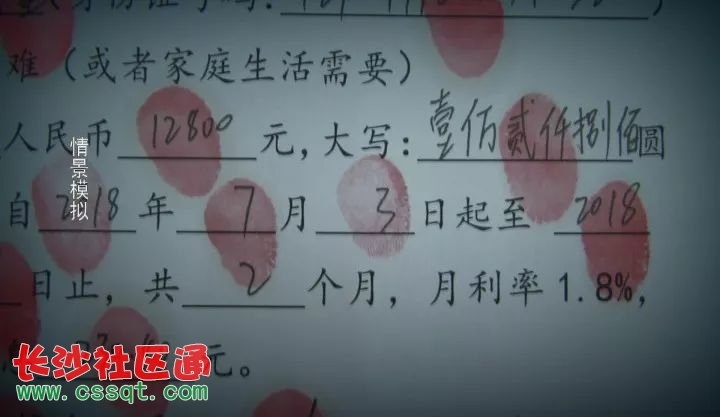 (身份证号码:
难(或者家庭生活需要)
人民币 12800 元,大写:壹佰贰仟捌佰圆
自 2018 年 7 月 3 日起至 2018
日止,共 2 个月,月利率1.8%,
元。
情景模拟
长沙社区通
www.cssqt.com